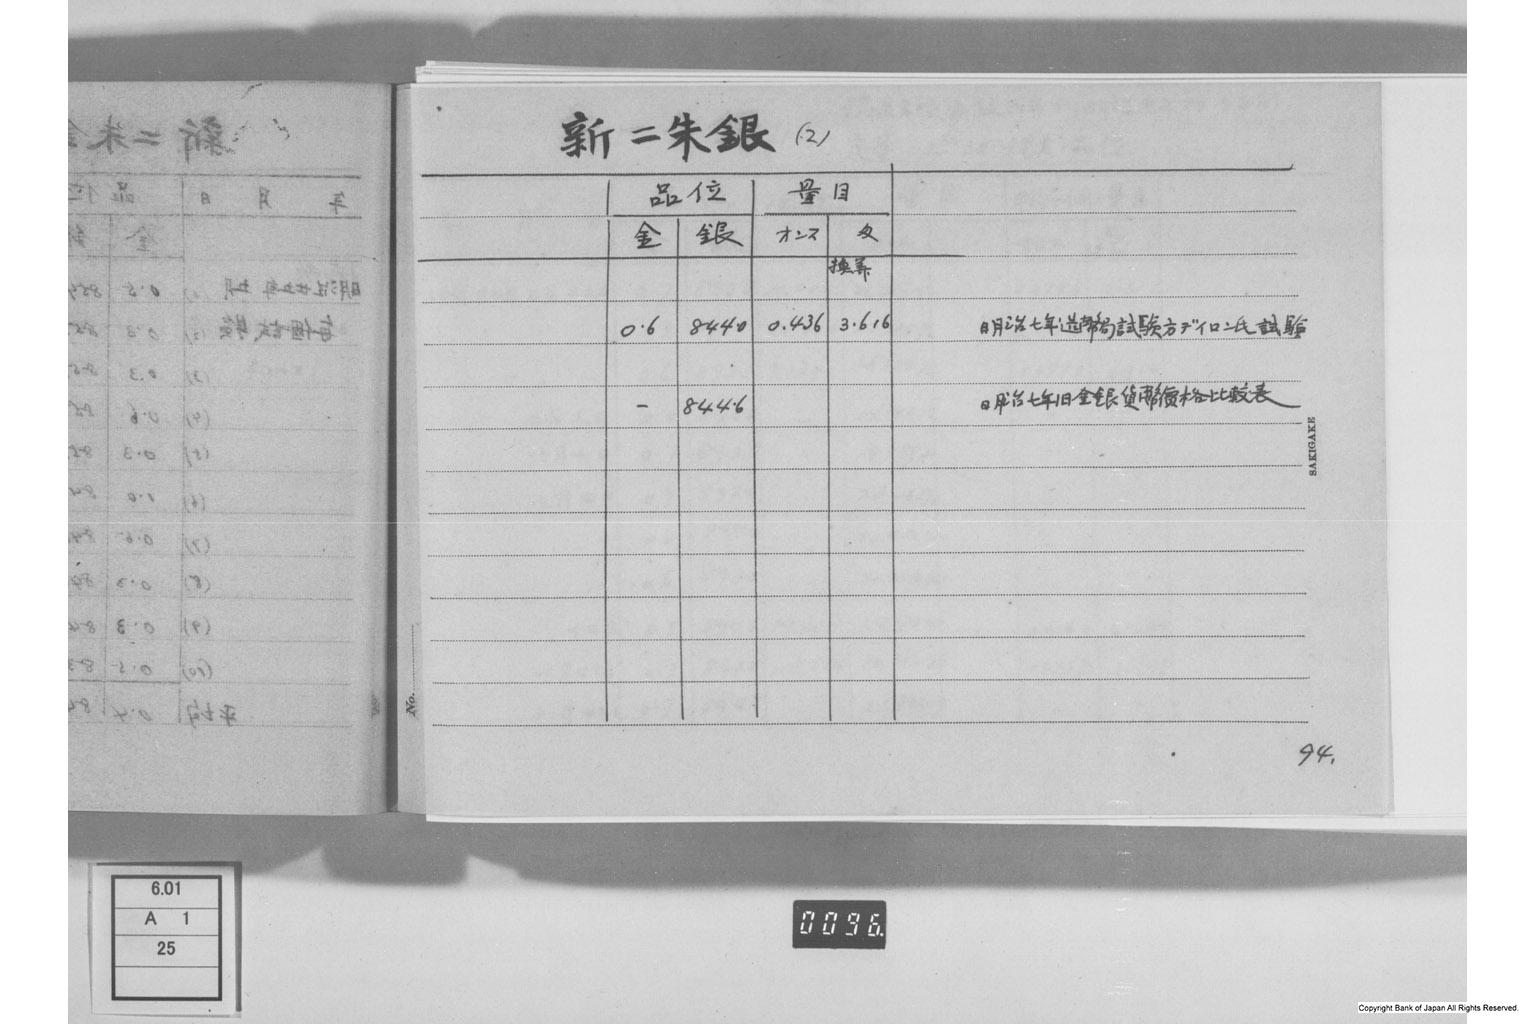 新二朱銀 (2)
品位 量目
金 銀 オンス 匁
換算
0.6 844.0 0.436 3.616 明治七年造幣局試験方デイロン氏試験
- 844.6 明治七年旧金銀貨幣價格比較表
SAKIGAKE
No.
94.
6.01
A 1
25
0096.
Copyright Bank of Japan All Rights Reserved.